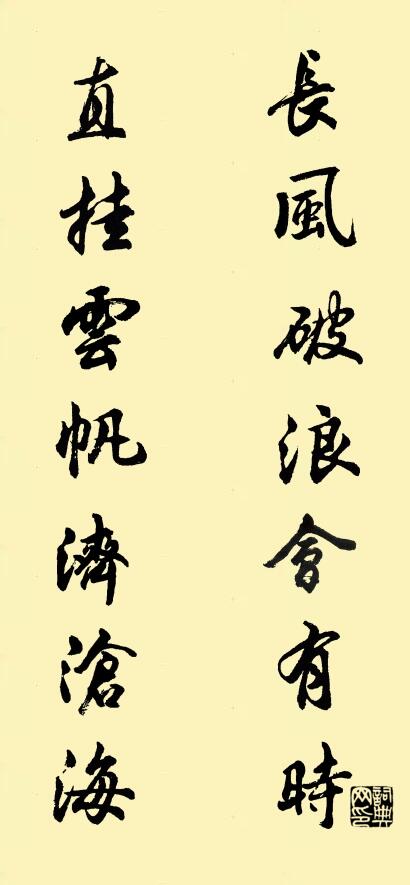 長風破浪會有時
直挂雲帆濟滄海
詞典网印